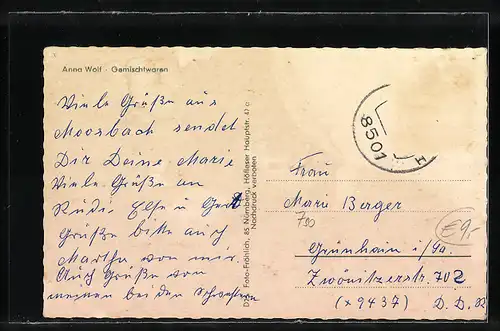 Anna Wolf · Gemischtwaren
Viele Grüße aus
Moosbach sendet
Dir Deine Marie
Viele Grüße an
Rudi Else u Gert
Grüße bitte auch
Martha von mir.
Auch Grüße von
meinen beiden Schwestern
Foto-Fröhlich, 85 Nürnberg, Höflaser Hauptstr.
Nachdruck verboten
8501
H
Frau
Marie Berger
790
€9,-
Grünhain i/Sa.
Zwönitzerstr. 702
(x9437) D.D.R